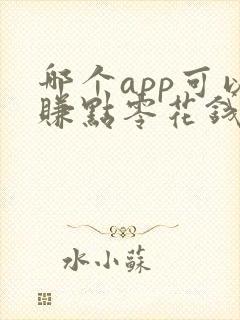 哪个app可以
賺點零花錢
水小蘇